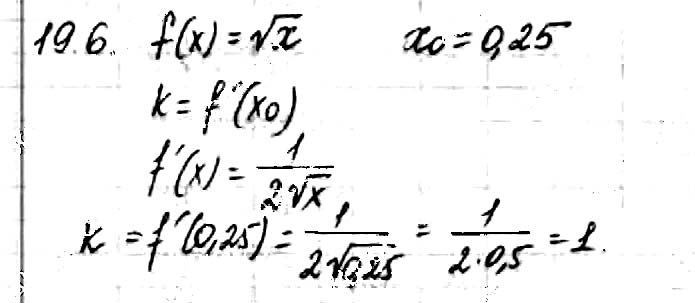 19.6. f(x) = √x x₀ = 0,25
k = f'(x₀)
f'(x) = 1/(2√x)
k = f'(0,25) = 1/(2√0,25) = 1/(2·0,5) = 1.